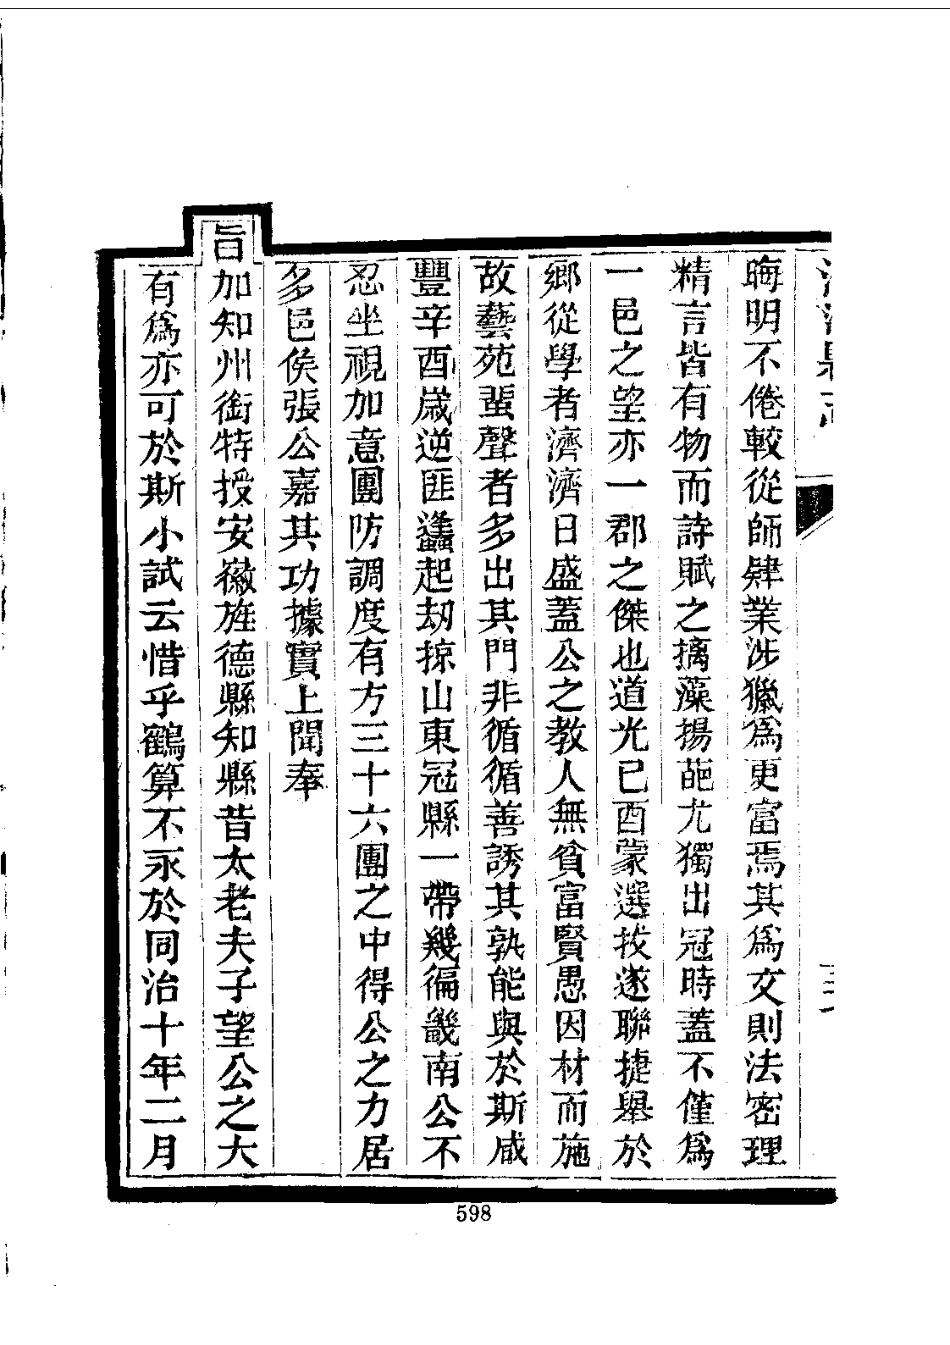 晦明不倦較從師肄業涉獵為更富焉其為文則法密理
精言皆有物而詩賦之摛藻揚葩尤獨出冠時蓋不僅為
一邑之望亦一郡之傑也道光己酉蒙選拔遂聯捷舉於
鄉從學者濟濟日盛蓋公之教人無貧富賢愚因材而施
故藝苑蜚聲者多出其門非循循善誘其孰能與於斯咸
豐辛酉歲逆匪蠭起刼掠山東冠縣一帶幾徧畿南公不
忍坐視加意團防調度有方三十六團之中得公之力居
多邑侯張公嘉其功據實上聞奉
旨加知州銜特授安徽旌德縣知縣昔太老夫子望公之大
有爲亦可於斯小試云惜乎鶴算不永於同治十年二月
598